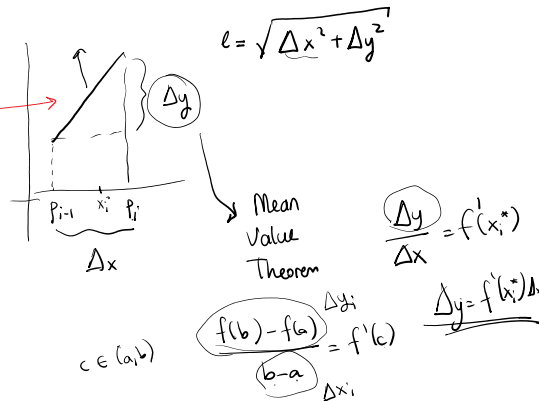 ℓ = √(Δx² + Δy²)
Δy
Pᵢ₋₁ xᵢ* Pᵢ
Δx
Mean
Value
Theorem
Δy/Δx = f'(xᵢ*)
Δy = f'(xᵢ*)Δx
c ∈ (a,b)
(f(b) − f(a))/(b−a) = f'(c)
Δyᵢ
Δxᵢ